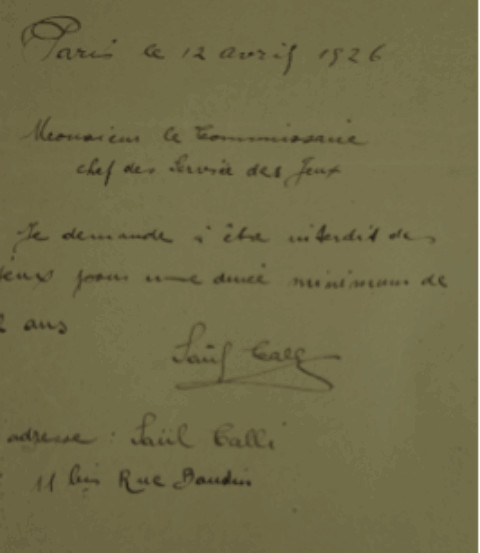 Paris le 12 avril 1926
Monsieur le Commissaire
chef des Service des Jeux
Je demande à être interdit des
jeux pour une durée minimum de
2 ans
Saül Calli
adresse : Saül Calli
11 bis Rue Baudin